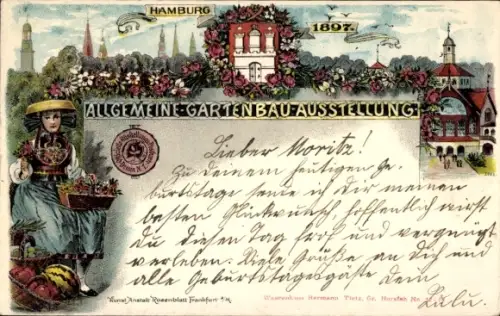 HAMBURG
1897.
ALLGEMEINE-GARTENBAU-AUSSTELLUNG
Lieber Moritz!
Zu deinem heutigen Ge-
burtstage sende ich Dir meinen
besten Glückwunsch, hoffentlich wirst
du diesen Tag froh und vergnügt
verleben. Viele Grüße an dich und
alle Geburtstagsgäste dein
Lulu.
Kunst Anstalt Rosenblatt Frankfurt a/M.
Warenhaus Hermann Tietz, Gr. Burstah